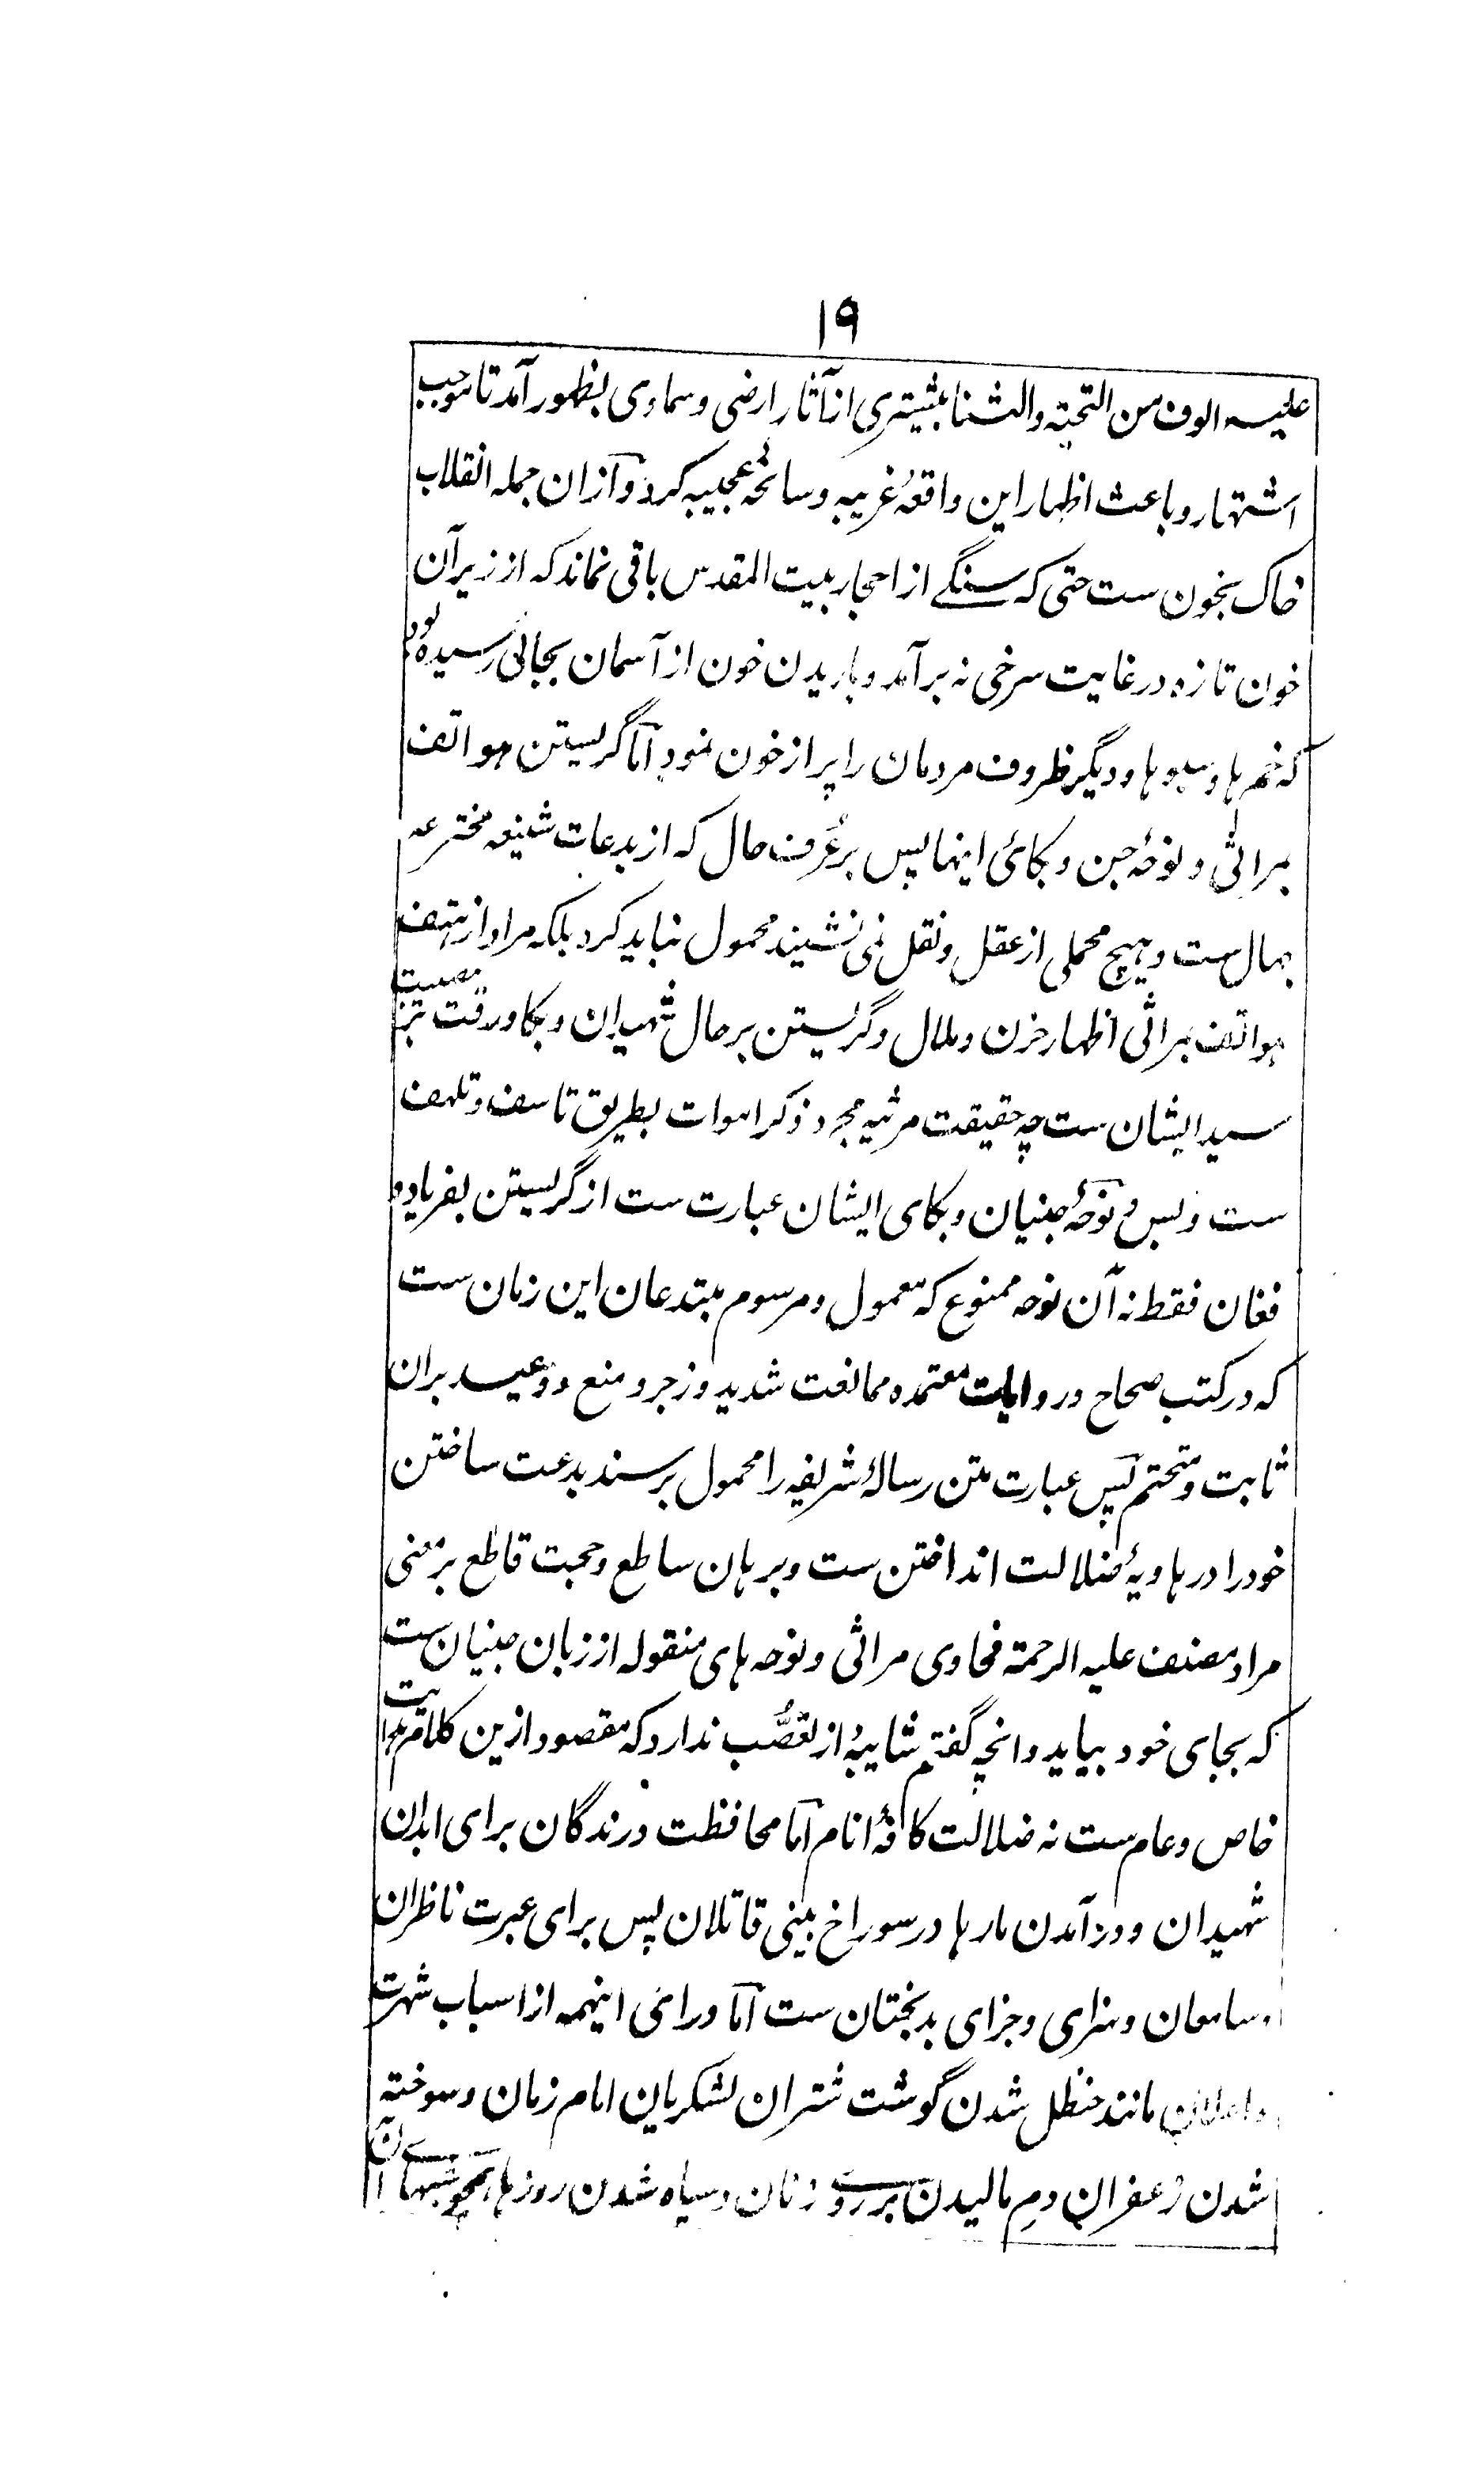 ۱۹
علیه الوف من التحیته والثنا بیشتری از آثار ارضی و سماوی بظهور آمد تا موجب
اشتهار و باعث اظهار این واقعهٔ غریبه و سانحهٔ عجیبه گردد و ازان جمله انقلاب
خاک بخون ست حتی که سنگے از احجار بیت المقدس باقی نماند که از زیر آن
خون تازه در غایت سرخی نه برآمد و باریدن خون از آسمان بجائی رسیده بود
که خم ها و سبو ها و دیگر ظروف مردمان را پر از خون نمود اما گریستن هواتف
بمراثی و نوحهٔ جن و بکائ اینها پس بر عُرف حال که از بدعات شنیعه مخترعه
جهال ست و هیچ محملی از عقل و نقل نمی نشیند محمول نباید کرد بلکه مراد از هتف
هواتف بمراثی اظهار حزن و ملال و گریستن بر حال شهیدان و بکا و رقت بر مصیبت
سید ایشان ست چه حقیقت مرثیه مجرد ذکر اموات بطریق تاسف و تلهف
ست و بس و نوحهٔ جنیان و بکای ایشان عبارت ست از گریستن بفریاد و
فغان فقط نه آن نوحه ممنوع که معمول و مرسوم مبتدعان این زمان ست
که در کتب صحاح و روایات معتمده ممانعت شدید و زجر و منع و وعید بران
ثابت و متحتم پس عبارت متن رسالهٔ شریفه را محمول بر سند بدعت ساختن
خود را در هاویهٔ ضلالت انداختن ست و برهان ساطع و حجت قاطع بر معنی
مراد مصنف علیه الرحمة فحاوی مراثی و نوحه های منقوله از زبان جنیان ست
که بجای خود بیاید و انچه گفتم شایبهٔ از تعصُّب ندارد که مقصود ازین کلام هدایت
خاص و عام ست نه ضلالت کافهٔ انام اما محافظت درندگان برای ابدان
شهیدان و درآمدن مارها در سوراخ بینی قاتلان پس برای عبرت ناظران
و سامعان و سزای و جزای بدبختان ست اما ورائ اینهمه از اسباب شهرت
و اعلان مانند حنظل شدن گوشت شتران لشکریان امام زمان و سوخته
شدن زعفران دم مالیدن بر روے زنان و سیاه شدن روزها همچو شبهاے آن